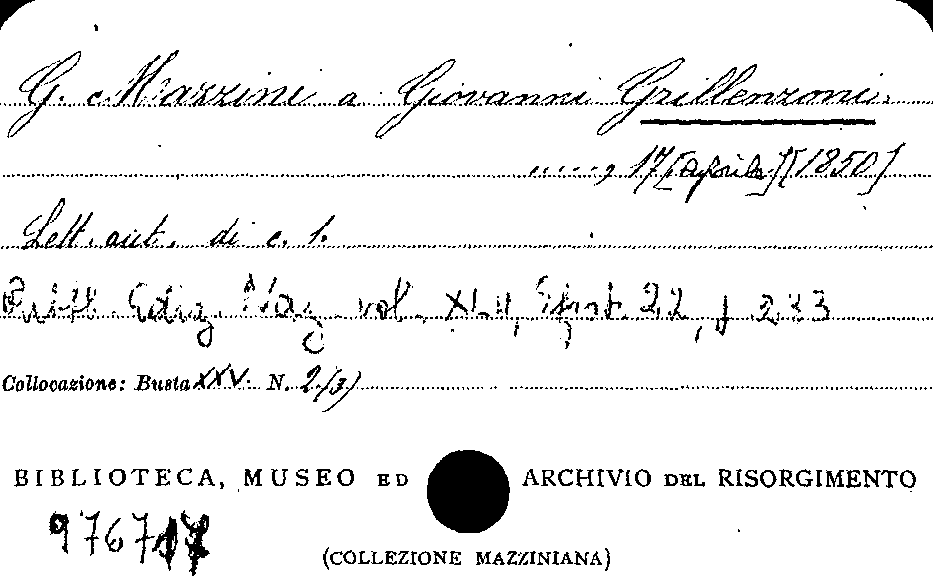 G. Mazzini a Giovanni Grillenzoni.
....., 17 [aprile] [1850]
Lett. aut. di c. 1.
Ediz. Naz. vol. XLII, 22, p 233
Collocazione: Busta XXV. N. 2/3)
BIBLIOTECA, MUSEO ED ARCHIVIO DEL RISORGIMENTO
(COLLEZIONE MAZZINIANA)